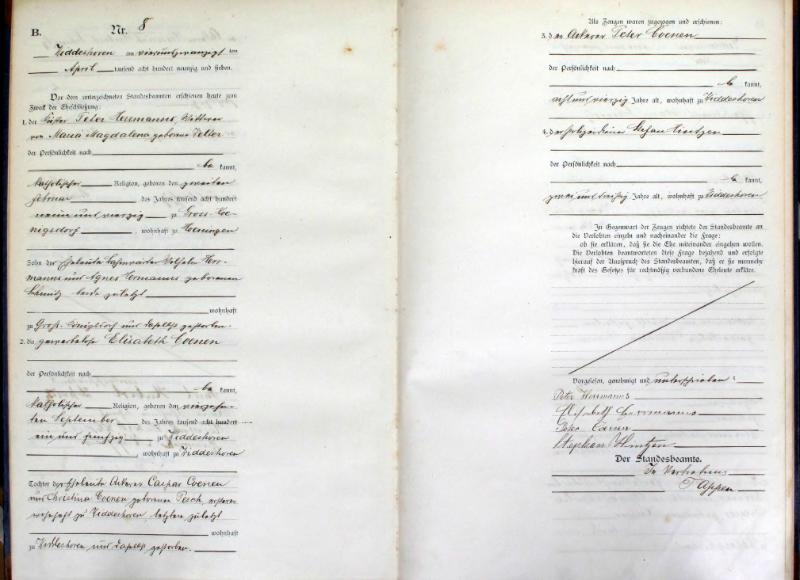 B.
Nr. 8
Widdeshoven am vierundzwanzigsten
April tausend acht hundert neunzig und sieben.
Vor dem unterzeichneten Standesbeamten erschienen heute zum
Zweck der Eheschließung:
1. der Küster Peter Hermanns, Wittwer
von Maria Magdalena geborene
der Persönlichkeit nach
be kannt,
katholischer Religion, geboren den zweiten
Februar des Jahres tausend acht hundert
neun und vierzig zu Gross-Koe-
nigsdorf, wohnhaft zu Hoeningen
Sohn der Eheleute Wilhelm Her-
manns und Agnes Hermanns geborenen
Schmitz beide zuletzt
wohnhaft
zu Groß-Königsdorf und daselbst gestorben.
2. die gewerbelose Elisabeth Coenen
der Persönlichkeit nach
be kannt,
katholischer Religion, geboren den
ten September des Jahres tausend acht hundert
ein und fünfzig zu Widdeshoven
wohnhaft zu Widdeshoven
Tochter der Eheleute Ackerer Caspar Coenen
und Christina Coenen geborenen Pesch, ersterer
wohnhaft zu Widdeshoven, letztere zuletzt
wohnhaft
zu Widdeshoven und daselbst gestorben.
Als Zeugen waren zugezogen und erschienen:
3. der Ackerer Peter Coenen
der Persönlichkeit nach
be kannt,
acht und vierzig Jahre alt, wohnhaft zu Widdeshoven
4. der Polizeidiener Stefan
der Persönlichkeit nach
be kannt,
zwei und dreißig Jahre alt, wohnhaft zu Widdeshoven
In Gegenwart der Zeugen richtete der Standesbeamte an
die Verlobten einzeln und nacheinander die Frage:
ob sie erklären, daß sie die Ehe miteinander eingehen wollen.
Die Verlobten beantworteten diese Frage bejahend und erfolgte
hierauf der Ausspruch des Standesbeamten, daß er sie nunmehr
kraft des Gesetzes für rechtmäßig verbundene Eheleute erkläre.
Vorgelesen, genehmigt und unterschrieben:
Peter Hermanns
Elisabeth Herrmanns
Peter Coenen
Stephan
Der Standesbeamte.
In Vertretung